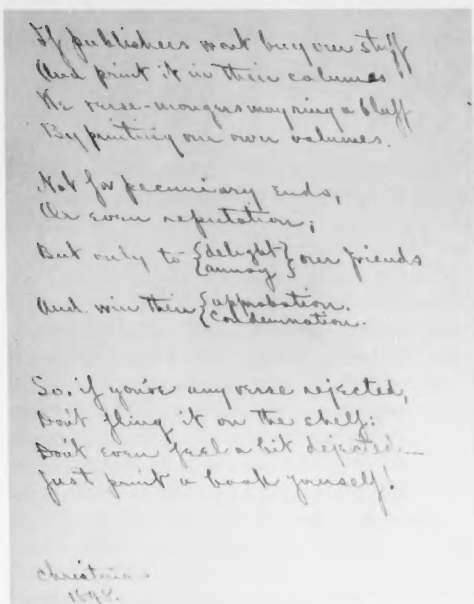 If publishers wont buy our stuff
And print it in their columns
We verse-mongers may ring a bluff
By printing our own volumes.
Not for pecuniary ends,
Or even reputation;
But only to {delight} our friends
{annoy}
And win their {approbation.
{condemnation.
So, if you've any verse rejected,
Don't fling it on the shelf:
Don't even feel a bit dejected—
Just print a book yourself!
Christmas